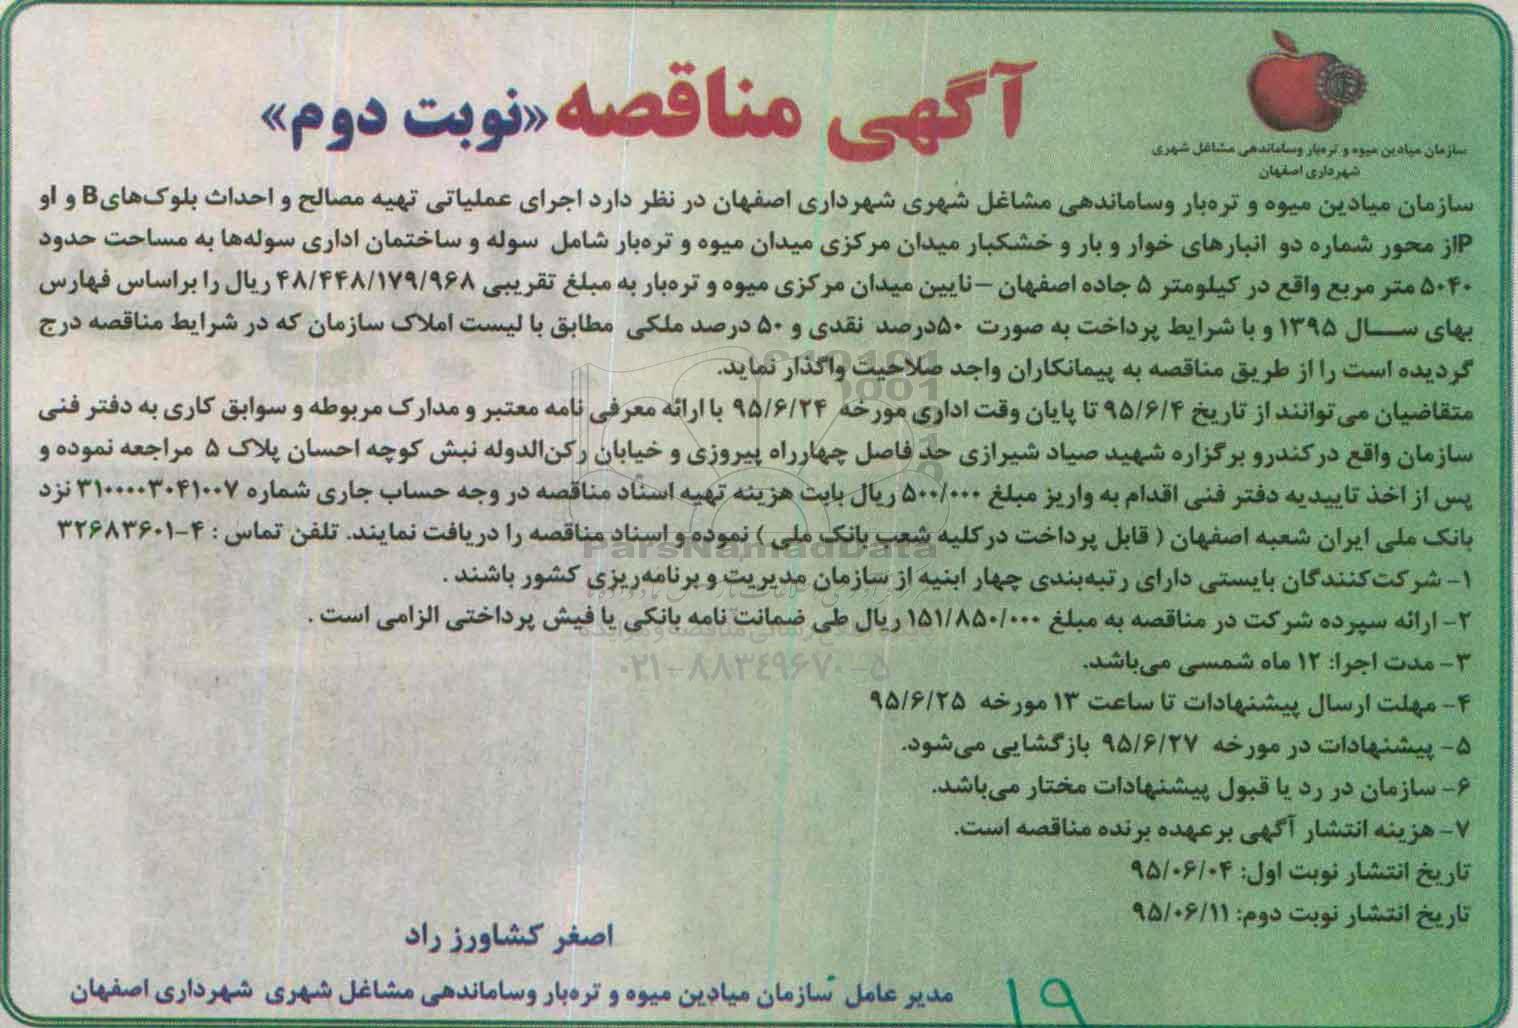 سازمان میادین میوه و تره‌بار وساماندهی مشاغل شهری
شهرداری اصفهان
آگهی مناقصه «نوبت دوم»
سازمان میادین میوه و تره‌بار وساماندهی مشاغل شهری شهرداری اصفهان در نظر دارد اجرای عملیاتی تهیه مصالح و احداث بلوک‌هایB و Iو
Pاز محور شماره دو انبارهای خوار و بار و خشکبار میدان مرکزی میدان میوه و تره‌بار شامل سوله و ساختمان اداری سوله‌ها به مساحت حدود
۵۰۴۰ متر مربع واقع در کیلومتر ۵ جاده اصفهان –نایین میدان مرکزی میوه و تره‌بار به مبلغ تقریبی ۴۸/۴۴۸/۱۷۹/۹۶۸ ریال را براساس فهارس
بهای ســـال ۱۳۹۵ و با شرایط پرداخت به صورت ۵۰درصد نقدی و ۵۰ درصد ملکی مطابق با لیست املاک سازمان که در شرایط مناقصه درج
گردیده است را از طریق مناقصه به پیمانکاران واجد صلاحیت واگذار نماید.
متقاضیان می‌توانند از تاریخ ۹۵/۶/۴ تا پایان وقت اداری مورخه ۹۵/۶/۲۴ با ارائه معرفی نامه معتبر و مدارک مربوطه و سوابق کاری به دفتر فنی
سازمان واقع در کندرو برگزاره شهید صیاد شیرازی حد فاصل چهارراه پیروزی و خیابان رکن‌الدوله نبش کوچه احسان پلاک ۵ مراجعه نموده و
پس از اخذ تاییدیه دفتر فنی اقدام به واریز مبلغ ۵۰۰/۰۰۰ ریال بابت هزینه تهیه اسناد مناقصه در وجه حساب جاری شماره ۳۱۰۰۰۰۳۰۴۱۰۰۷ نزد
بانک ملی ایران شعبه اصفهان ( قابل پرداخت در کلیه شعب بانک ملی ) نموده و اسناد مناقصه را دریافت نمایند. تلفن تماس : ۴-۳۲۶۸۳۶۰۱
۱- شرکت‌کنندگان بایستی دارای رتبه‌بندی چهار ابنیه از سازمان مدیریت و برنامه‌ریزی کشور باشند .
۲- ارائه سپرده شرکت در مناقصه به مبلغ ۱۵۱/۸۵۰/۰۰۰ ریال طی ضمانت نامه بانکی یا فیش پرداختی الزامی است .
۳- مدت اجرا: ۱۲ ماه شمسی می‌باشد.
۴- مهلت ارسال پیشنهادات تا ساعت ۱۳ مورخه ۹۵/۶/۲۵
۵- پیشنهادات در مورخه ۹۵/۶/۲۷ بازگشایی می‌شود.
۶- سازمان در رد یا قبول پیشنهادات مختار می‌باشد.
۷- هزینه انتشار آگهی بر عهده برنده مناقصه است.
تاریخ انتشار نوبت اول: ۹۵/۰۶/۰۴
تاریخ انتشار نوبت دوم: ۹۵/۰۶/۱۱
اصغر کشاورز راد
مدیر عامل سازمان میادین میوه و تره‌بار وساماندهی مشاغل شهری شهرداری اصفهان
۱۹
ParsNamadData
۰۲۱-۸۸۳۴۹۶۷۰-۵